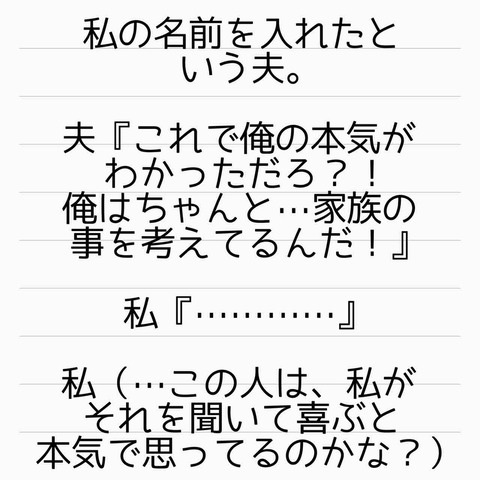 私の名前を入れたと
いう夫。
夫『これで俺の本気が
わかっただろ？！
俺はちゃんと…家族の
事を考えてるんだ！』
私『…………』
私（…この人は、私が
それを聞いて喜ぶと
本気で思ってるのかな？）